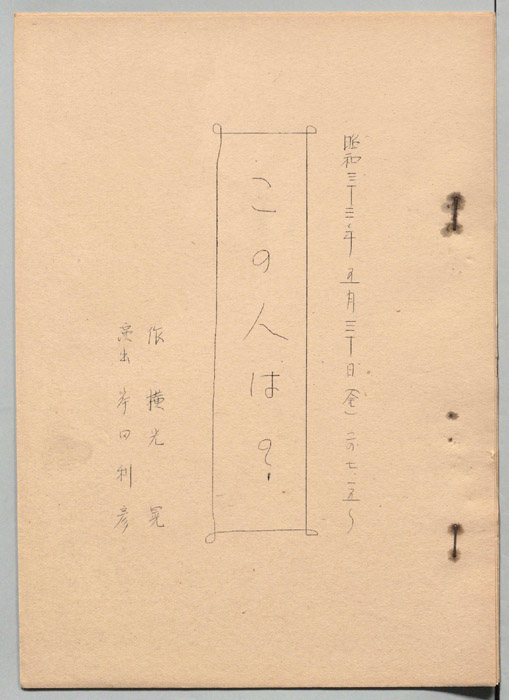 昭和三十三年五月三十日(金)二〇・七・一五~
この人は?
作 横光 晃
演出 岸田利彦